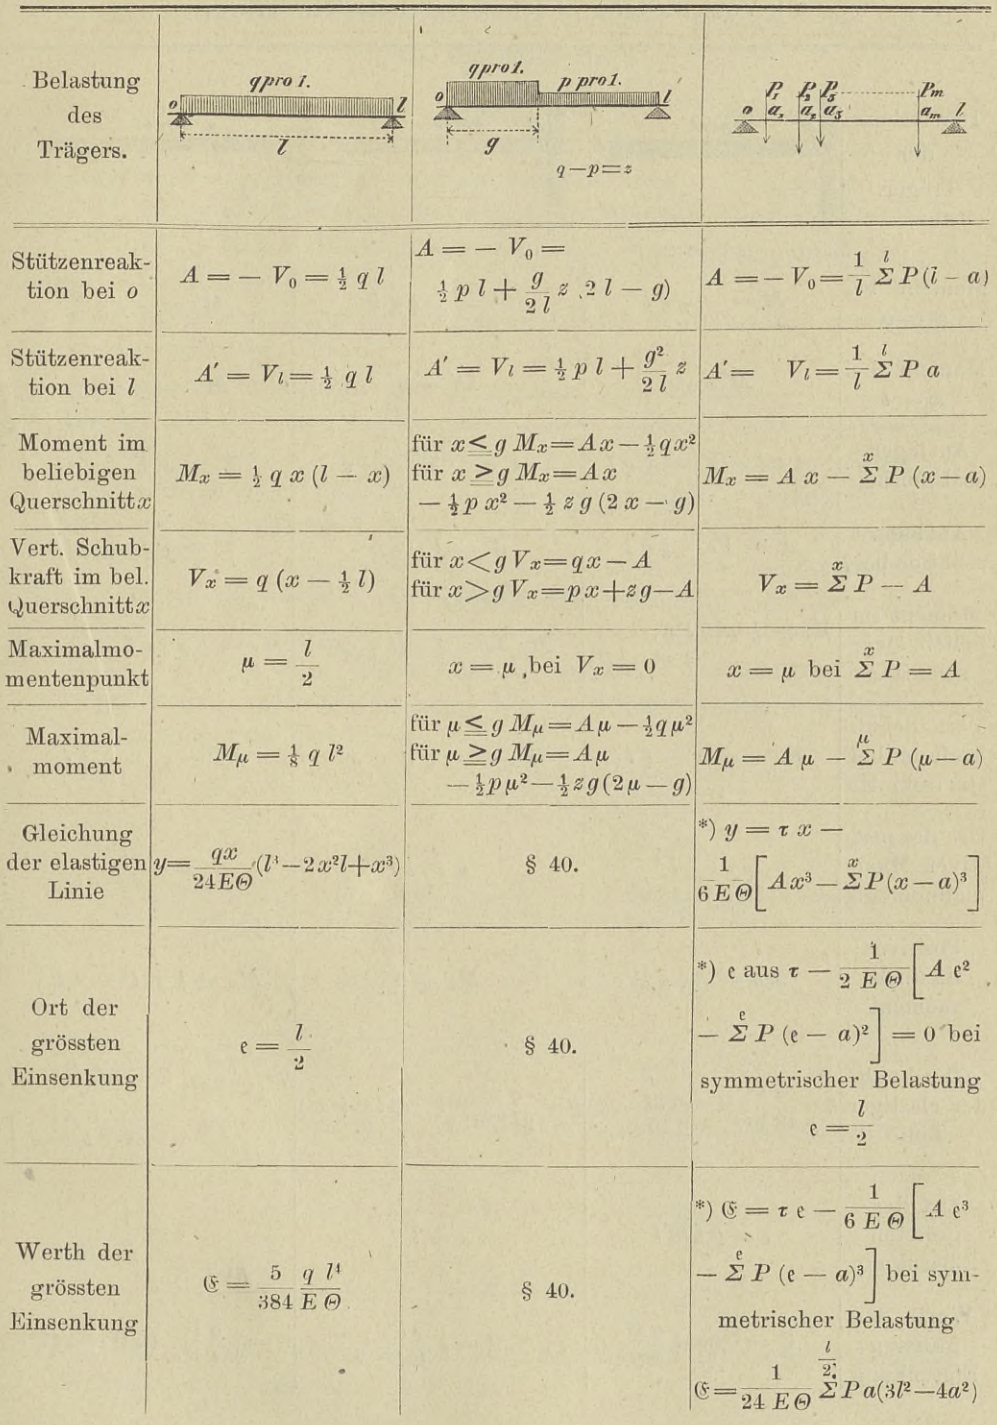 Belastung
des
Trägers.
q pro 1.
o l
l
q pro 1. p pro 1.
o l
g
q — p = z
P₁ P₂ P₃ Pm
o a₁ a₂ a₃ am l
Stützenreak-
tion bei o
A = — V₀ = ½ q l
A = — V₀ =
½ p l + g/2l z 2 l — g)
A = — V₀ = 1/l Σ^l P (l - a)
Stützenreak-
tion bei l
A' = V_l = ½ q l
A' = V_l = ½ p l + g²/2l z
A' = V_l = 1/l Σ^l P a
Moment im
beliebigen
Querschnitt x
M_x = ½ q x (l — x)
für x ≤ g M_x = A x — ½ q x²
für x ≥ g M_x = A x
— ½ p x² — ½ z g (2 x — g)
M_x = A x — Σ^x P (x — a)
Vert. Schub-
kraft im bel.
Querschnitt x
V_x = q (x — ½ l)
für x < g V_x = q x — A
für x > g V_x = p x + z g — A
V_x = Σ^x P — A
Maximalmo-
mentenpunkt
μ = l/2
x = μ bei V_x = 0
x = μ bei Σ^x P = A
Maximal-
moment
M_μ = ⅛ q l²
für μ ≤ g M_μ = A μ — ½ q μ²
für μ ≥ g M_μ = A μ
— ½ p μ² — ½ z g (2 μ — g)
M_μ = A μ — Σ^μ P (μ — a)
Gleichung
der elastigen
Linie
y = qx/24EΘ (l³ — 2x²l + x³)
§ 40.
*) y = τ x —
1/6EΘ [A x³ — Σ^x P (x — a)³]
Ort der
grössten
Einsenkung
e = l/2
§ 40.
*) e aus τ — 1/2EΘ [A e²
— Σ^e P (e — a)²] = 0 bei
symmetrischer Belastung
e = l/2
Werth der
grössten
Einsenkung
𝔈 = 5/384 q l⁴/EΘ
§ 40.
*) 𝔈 = τ e — 1/6EΘ [A e³
— Σ^e P (e — a)³] bei sym-
metrischer Belastung
𝔈 = 1/24EΘ Σ^(l/2) P a (3l² — 4a²)